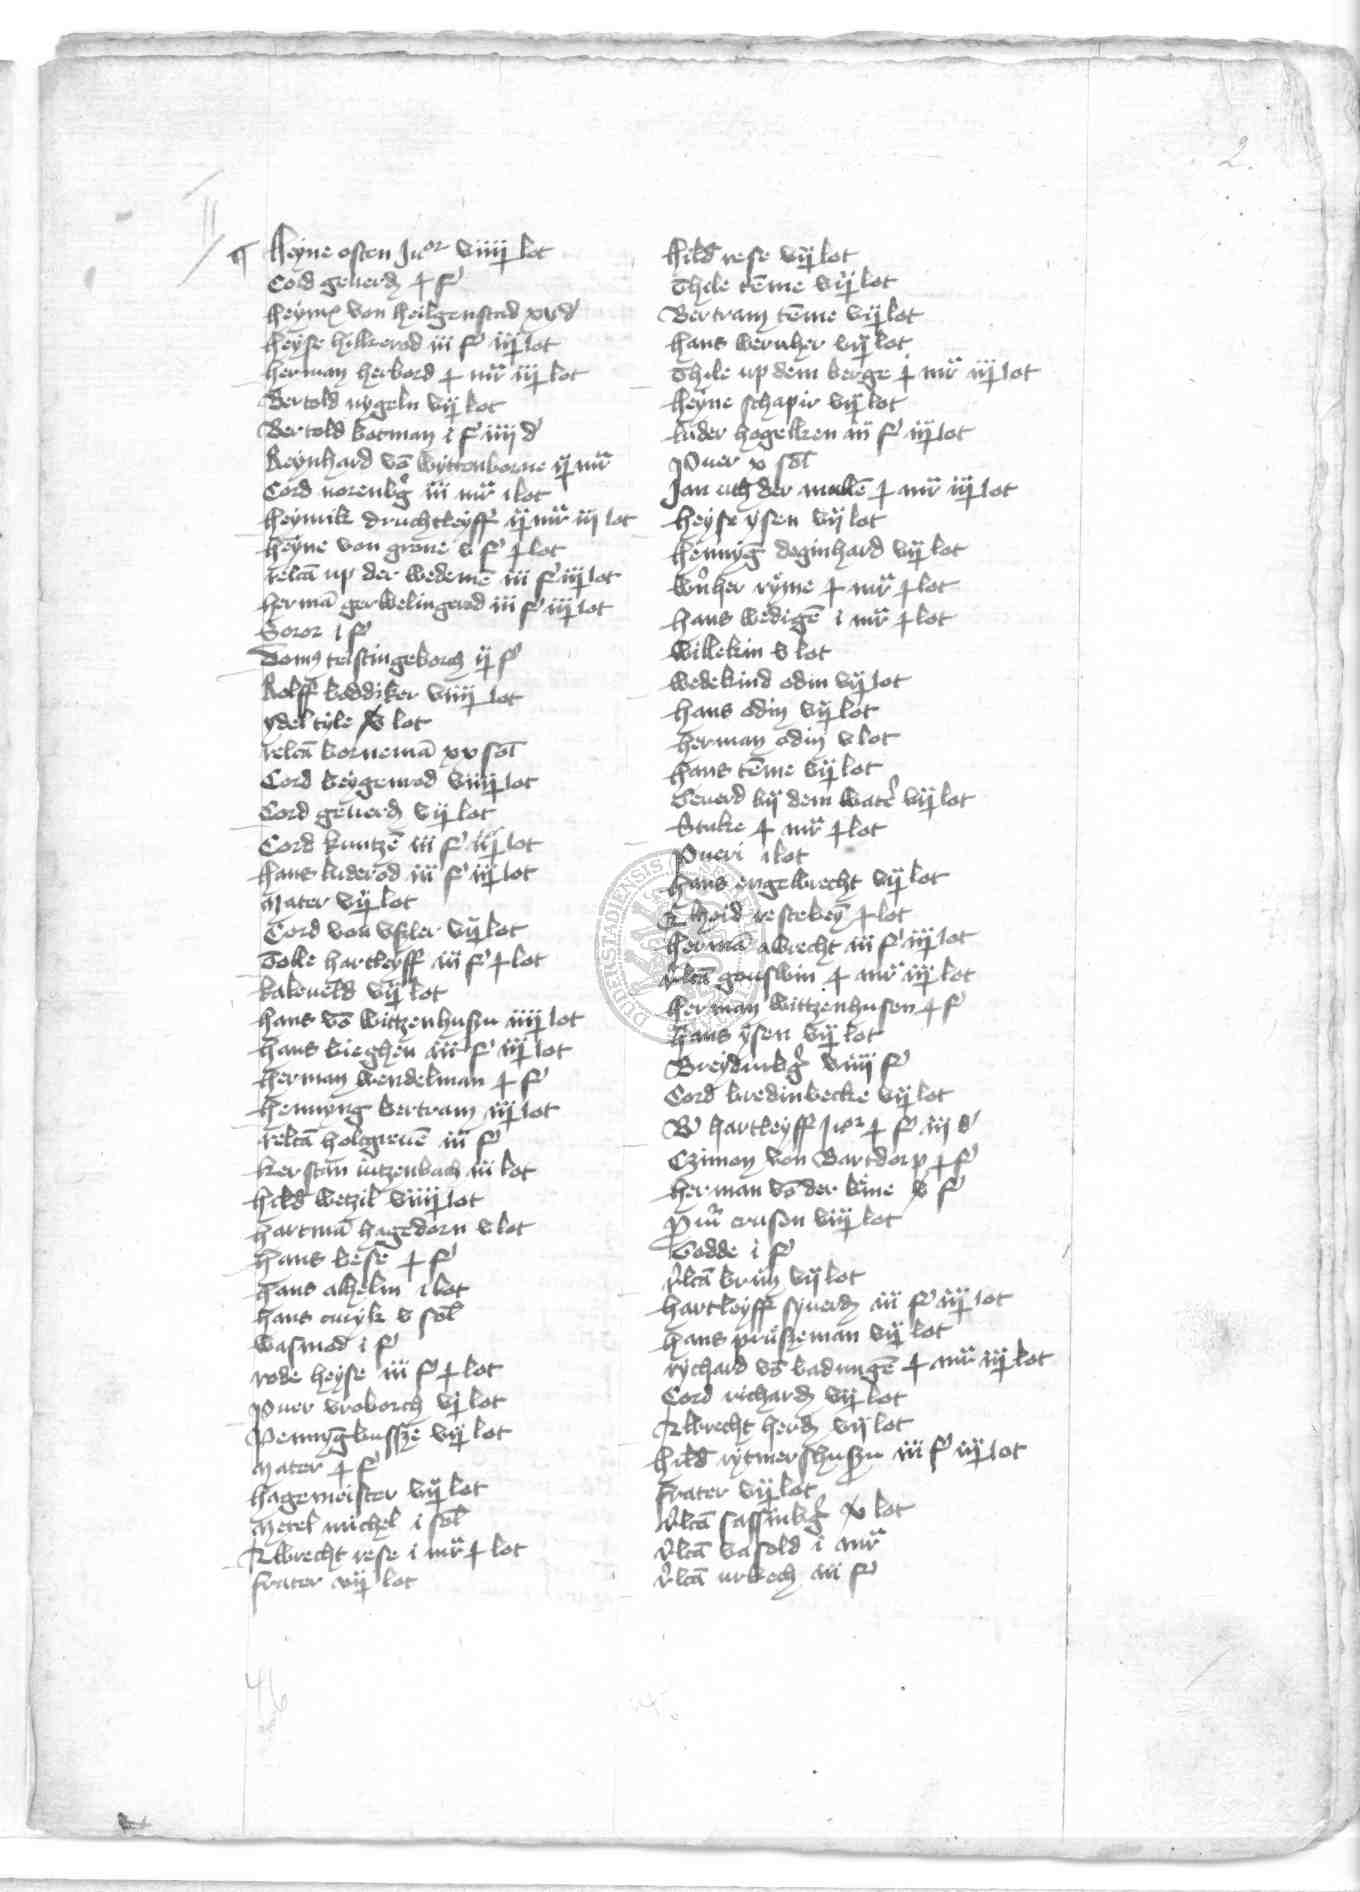 2
Heyne osten Juor viiij lot
Cord geuerd ɟ f
heynr von heilgenstad xv d
heyse hilkerod iii f iij lot
herman herbord ɟ mr iij lot
Bertold nygeln vij lot
Bertold botman i f iiii d
Reynhard vō wyttenborne ij mr
Cord norenbg iii mr i lot
heynrik druchtleyff ij mr iij lot
heyne von grone v f ɟ lot
relcā up der wedemē iii f iij lot
hermā gerwelingerod iii f iij lot
Soror i f
Domus teistingeborch ij f
Rolff boddiker viiij lot
ydel tyle v lot
relcā bornemā xv sol
Cord beygenrod viiij lot
Cord geuerd vij lot
Cord kuntzē iii f iij lot
hans luderod iii f iij lot
Mater vij lot
Cord von Usler vij lot
Tolle hartleyff iii f ɟ lot
kaleueld vij lot
hans vō wittzenhuszn iiij lot
hans bieghen iii f iij lot
herman wendelman ɟ f
hennyng bertram iij lot
relcā holtgreuē iii f
kerstan iutzenbach iii lot
hild wetzil viiij lot
hartmā hagedorn v lot
hans bese ɟ f
hans alhelm i lot
hans curyk v sol
wasmod i f
rode heyse iii f ɟ lot
Puer vroborch vj lot
Pennyg busse vij lot
Mater ɟ f
hagemeister vij lot
Metel michel i sol
Albrecht rese i mr ɟ lot
frater vij lot
hild rese vij lot
Thile tēme vij lot
Bertram tēme vij lot
hans wernher vij lot
Thile up dem berge ɟ mr iij lot
heyne schapir vij lot
luder hogelken iii f iij lot
Puer v sol
Jan uth der molē ɟ mr iij lot
heyse ysen vij lot
hennyg deginhard vij lot
wnher ryme ɟ mr ɟ lot
hans wedigē i mr ɟ lot
willekin v lot
wedekind odin vij lot
hans odin vij lot
herman odin v lot
hans tēme vij lot
Geuerd by dem water vij lot
Stuke ɟ mr ɟ lot
Pueri i lot
hans engelbrecht vij lot
Thoid restebey ɟ lot
hermā albrecht iii f iij lot
relcā gonswin ɟ mr iij lot
herman wittzenhusen ɟ f
hans ysen vij lot
Breydinbg viiii f
Cord bredinbecke vij lot
B hartleyff Juor ɟ f iii d
Czimon von Bartdorp ɟ f
herman vō der line v f
Pur crusen viij lot
Godde i f
relcā brun vij lot
hartleyff syuerd iii f iij lot
hans pruszeman vij lot
rychard vō badungē ɟ mr iij lot
Cord richard vij lot
Albrecht herd vij lot
hild rytmershuszn iii f iij lot
frater vij lot
relcā sassinbg v lot
relcā vasold i mr
relcā urbech iii f
46